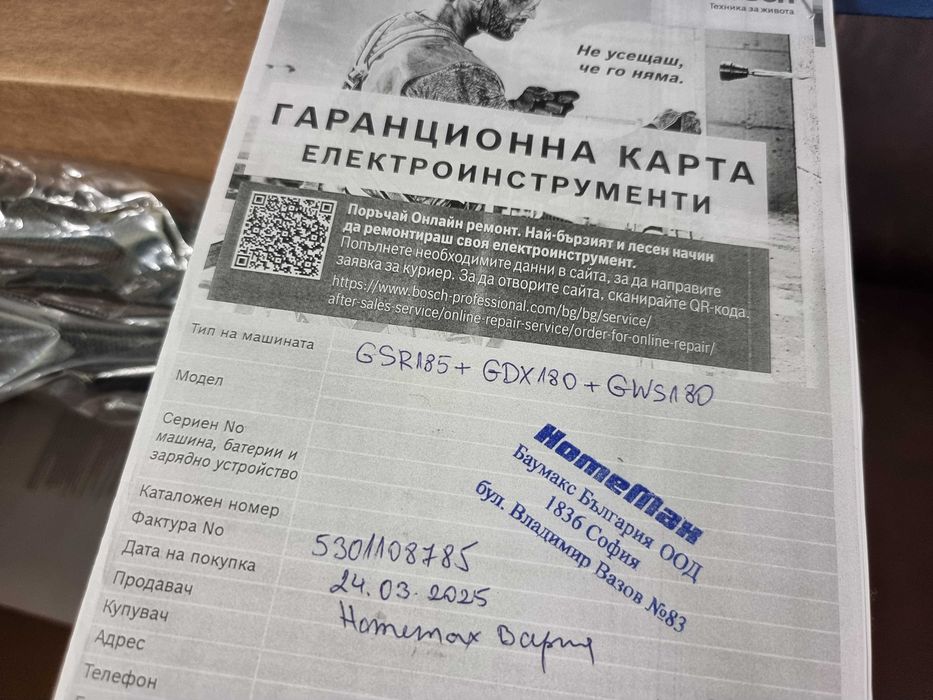 Техника за живота
Не усещаш,
че го няма.
ГАРАНЦИОННА КАРТА
ЕЛЕКТРОИНСТРУМЕНТИ
Поръчай Онлайн ремонт. Най-бързият и лесен начин
да ремонтираш своя електроинструмент.
Попълнете необходимите данни в сайта, за да направите
заявка за куриер. За да отворите сайта, сканирайте QR-кода.
https://www.bosch-professional.com/bg/bg/service/
after-sales-service/online-repair-service/order-for-online-repair/
Тип на машината
GSR185+ GDX180 + GWS180
Модел
Сериен No
машина, батерии и
зарядно устройство
Каталожен номер
Фактура No 5301108785
Дата на покупка 24.03.2025
Продавач Homemax Варна
Купувач
Адрес
Телефон
HomeMax
Баумакс България ООД
1836 София
бул. Владимир Вазов №83